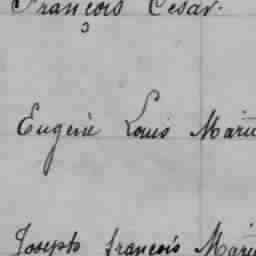 François César.
Eugène Louis Marie
Joseph françois Marie